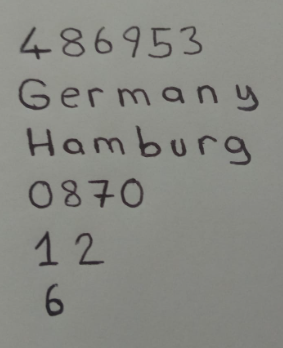 486953
Germany
Hamburg
0870
12
6